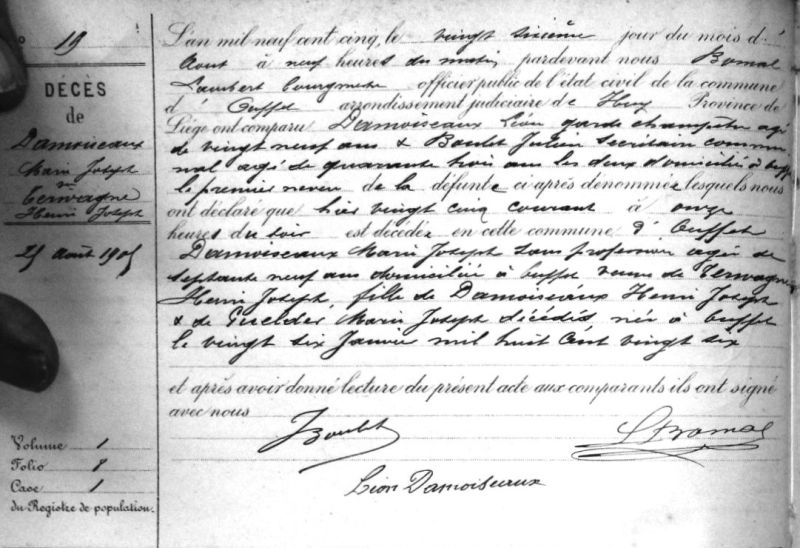 19
DÉCÈS
de
Damoiseaux
Marie Joseph
ve
Terwagne
Henri Joseph
25 août 1905
Volume 1
Folio 8
Case 1
du Registre de population.
L'an mil neuf cent cinq, le vingt sixième jour du mois d'
Aout à neuf heures du matin pardevant nous Bomal
Lambert bourgmestre officier public de l'état civil de la commune
d' Ouffet arrondissement judiciaire de Huy Province de
Liége ont comparu Damoiseaux Léon garde champêtre agé
de vingt neuf ans & Boulet Julien secrétaire commu
nal agé de quarante trois ans les deux domiciliés à Ouffet
le premier neveu de la défunte ci après dénommée lesquels nous
ont déclaré que hier vingt cinq courant à onze
heures du soir est décédée en cette commune d' Ouffet
Damoiseaux Marie Joseph sans profession agée de
septante neuf ans domiciliée à Ouffet veuve de Terwagne
Henri Joseph, fille de Damoiseaux Henri Joseph
& de Marie Joseph décédés née à Ouffet
le vingt six Janvier mil huit cent vingt six
et après avoir donné lecture du présent acte aux comparants ils ont signé
avec nous
JBoulet
LBomal
Léon Damoiseaux